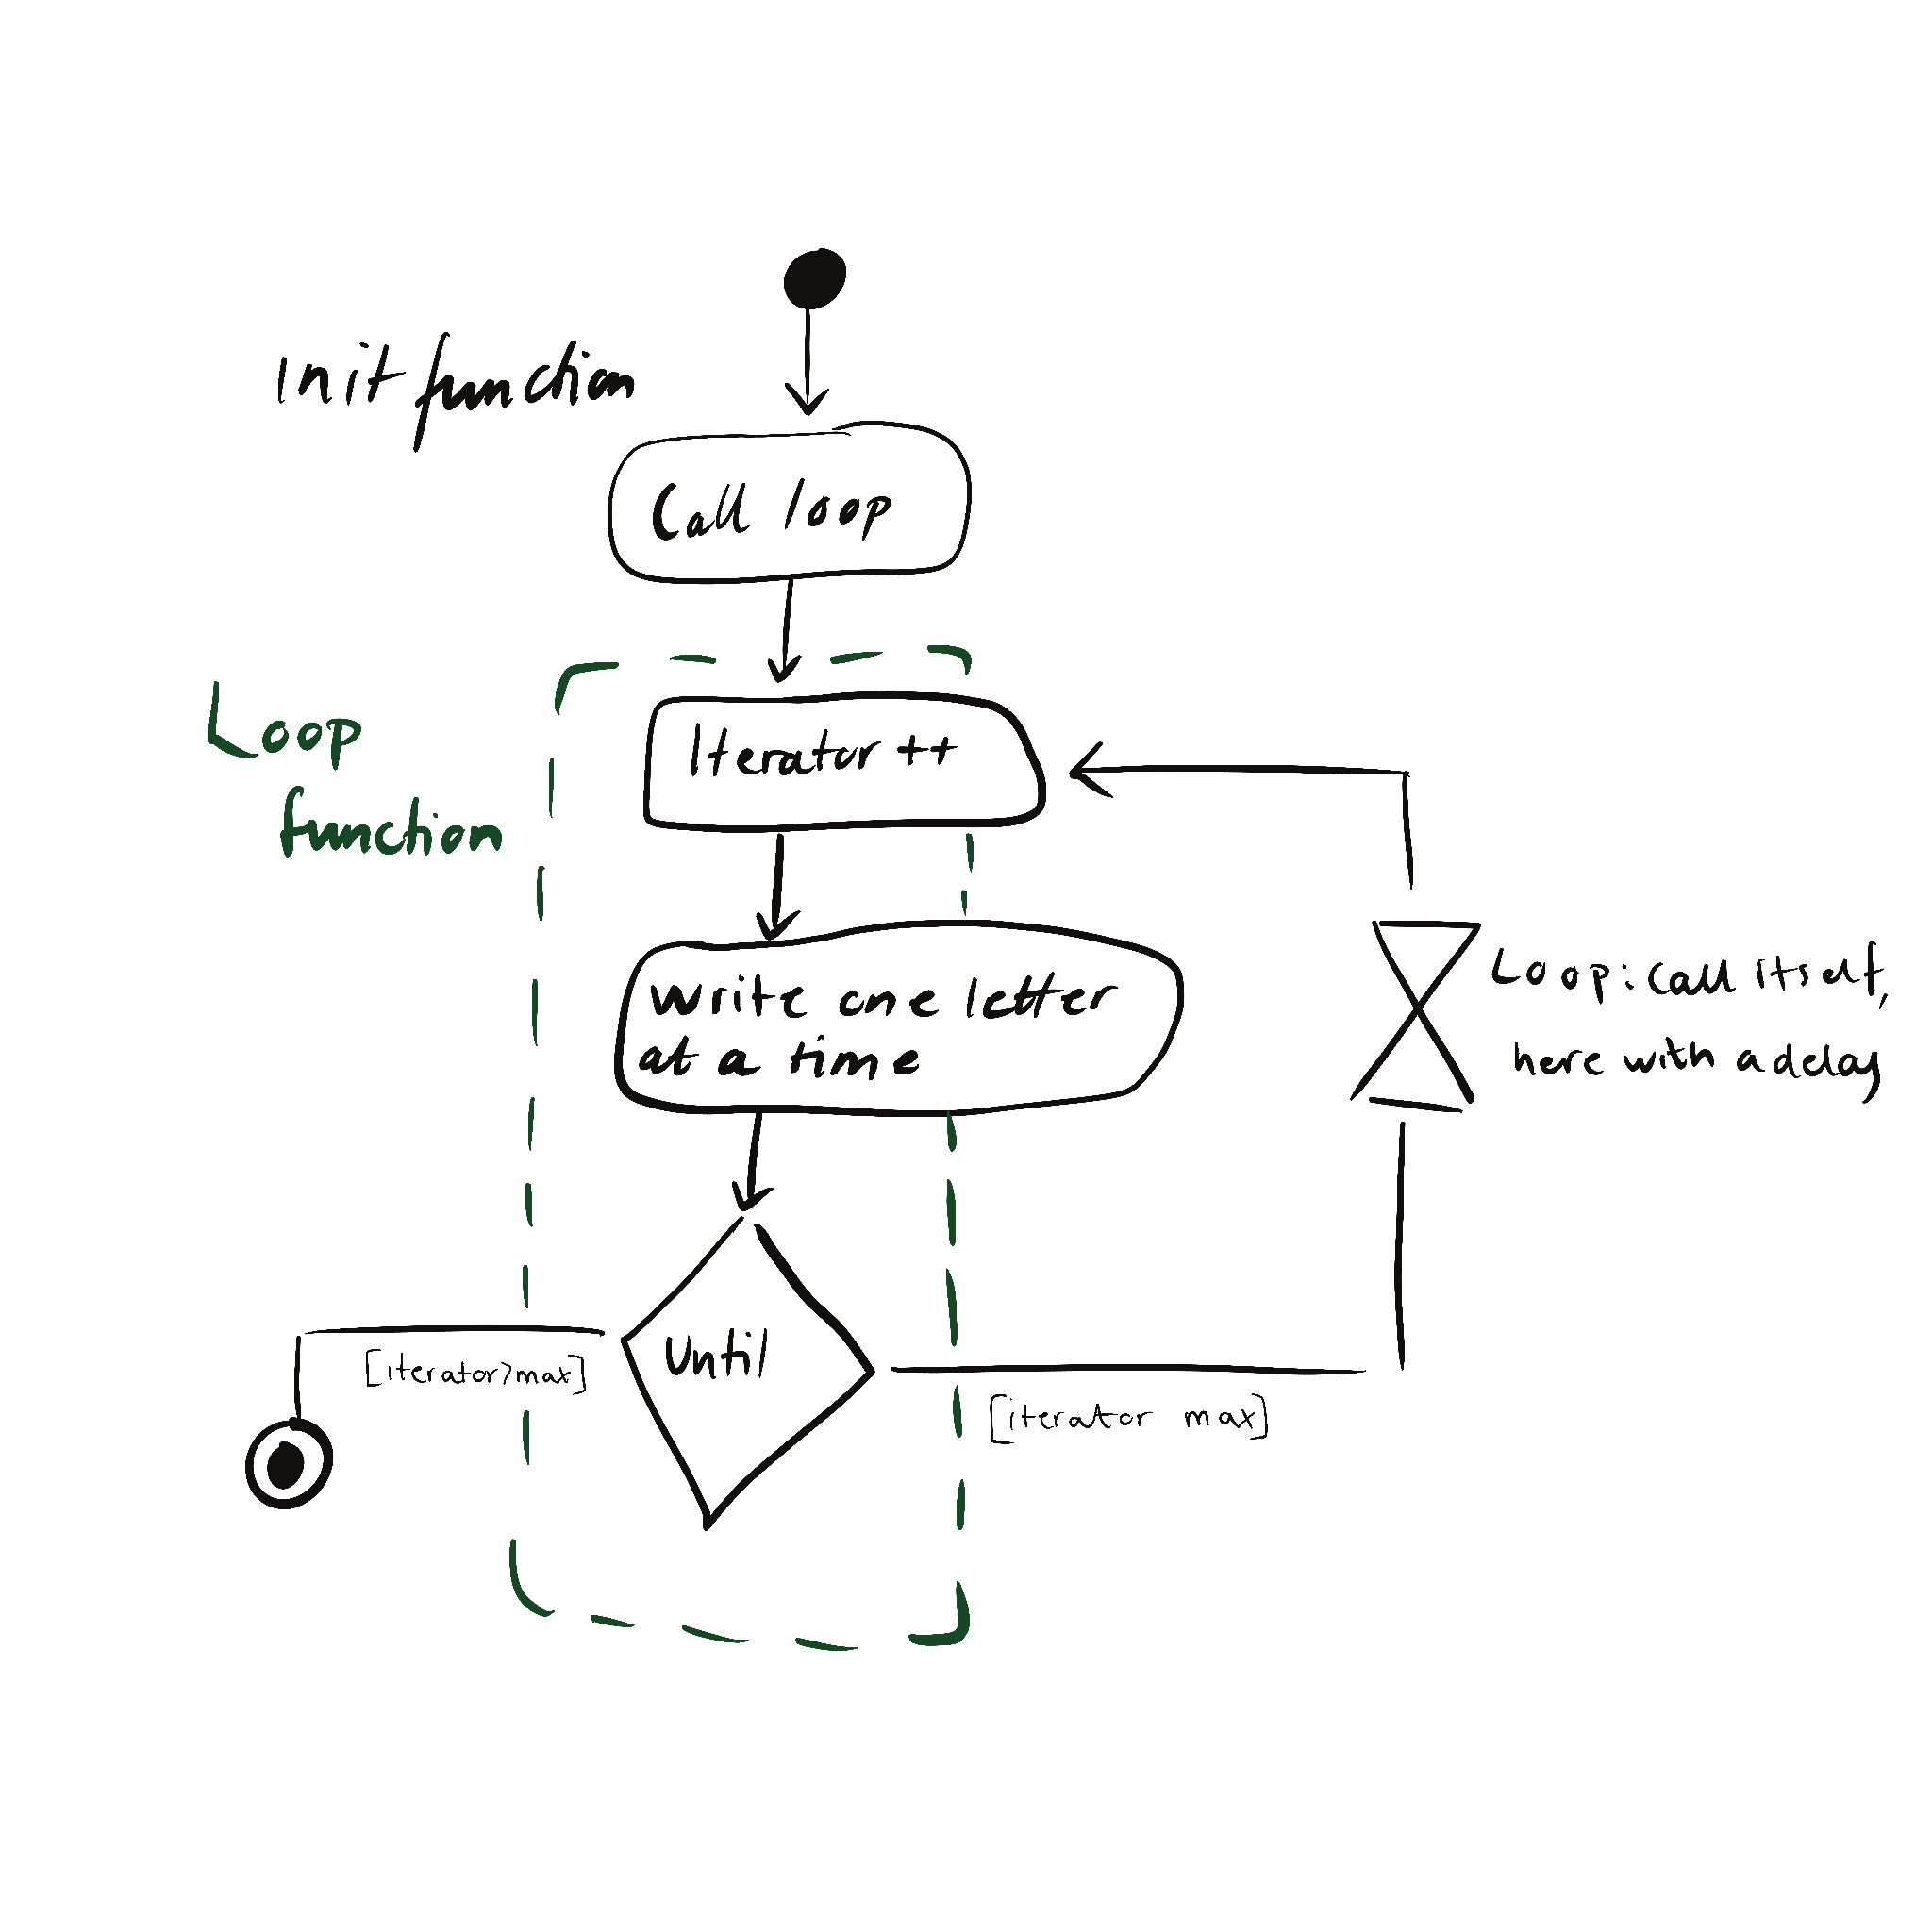 Init function
Call loop
Loop
function
Iterator ++
Write one letter
at a time
Loop: Call itself,
here with a delay
Until
[iterator>max]
[iterator max]